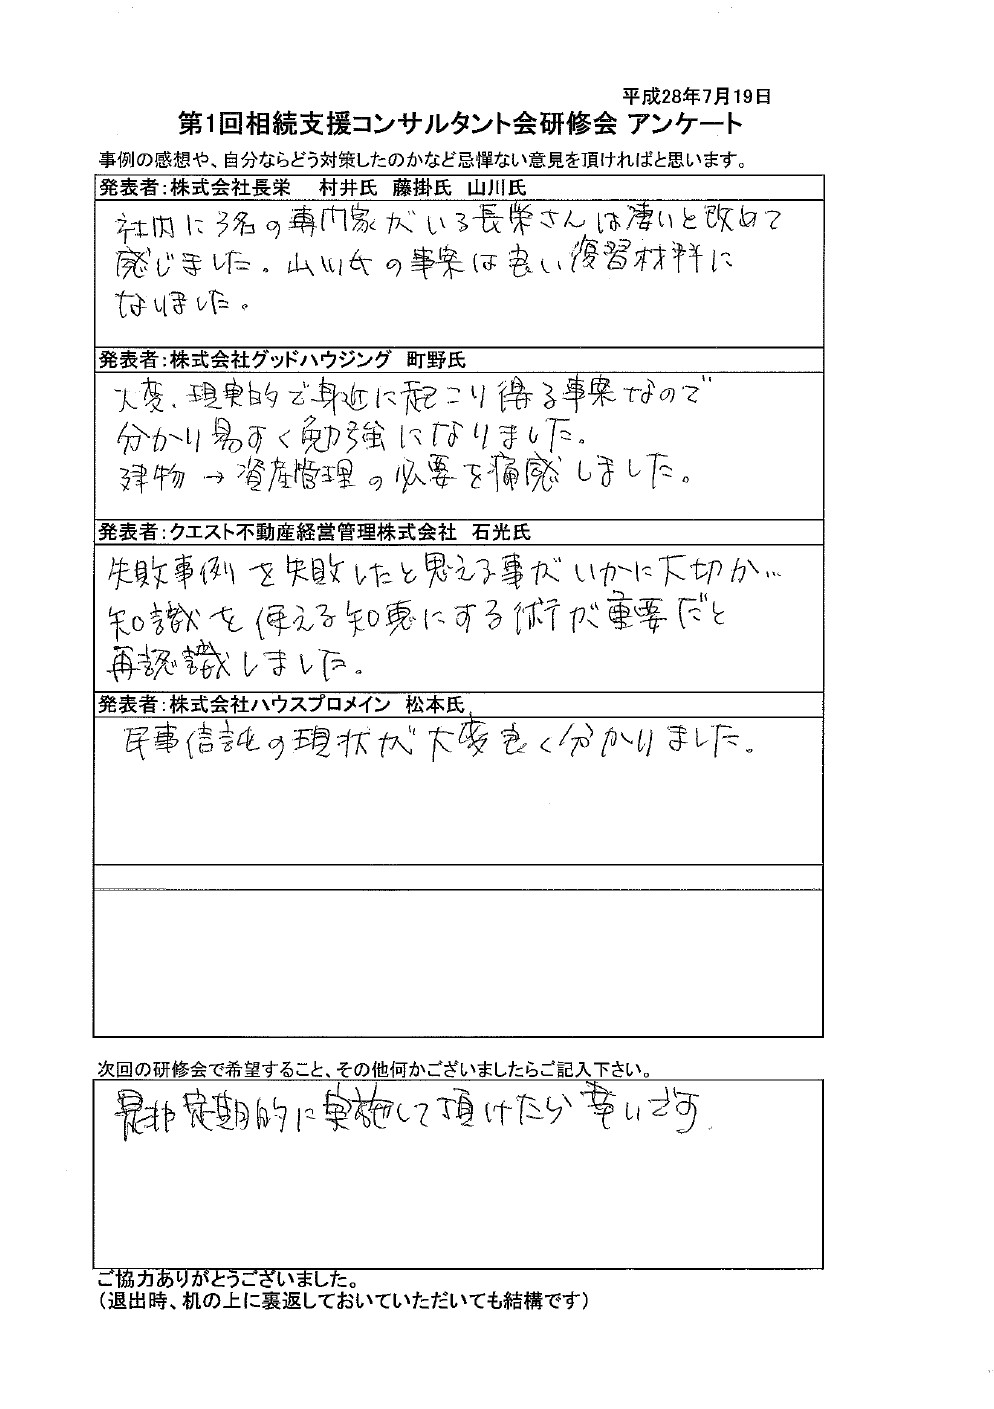 平成28年7月19日
第1回相続支援コンサルタント会研修会 アンケート
事例の感想や、自分ならどう対策したのかなど忌憚ない意見を頂ければと思います。
発表者：株式会社長栄　村井氏　藤掛氏　山川氏
社内に3名の専門家がいる長栄さんは凄いと改めて
感じました。山川氏の事案は良い復習材料に
なりました。
発表者：株式会社グッドハウジング　町野氏
大変、現実的で身近に起こり得る事案なので
分かり易すく勉強になりました。
建物→資産管理の必要を痛感しました。
発表者：クエスト不動産経営管理株式会社　石光氏
失敗事例を失敗したと思える事がいかに大切か…
知識を使える知恵にする術が重要だと
再認識しました。
発表者：株式会社ハウスプロメイン　松本氏
民事信託の現状が大変良く分かりました。
次回の研修会で希望すること、その他何かございましたらご記入下さい。
是非定期的に実施して頂けたら幸いです
ご協力ありがとうございました。
（退出時、机の上に裏返しておいていただいても結構です）